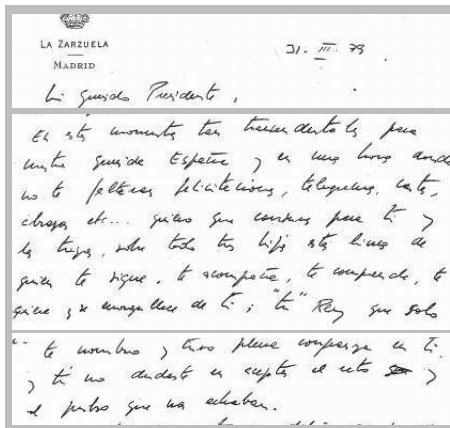 LA ZARZUELA
MADRID
31. III. 79.
Mi querido Presidente,
En estos momentos tan trascendentales para
nuestra querida España y en una hora donde
no te faltarán felicitaciones, telegramas, cartas,
abrazos etc... quiero que conserves para ti y
los tuyos, sobre todo tus hijos estas lineas de
quien te sigue, te acompaña, te comprende, te
quiere y se enorgullece de ti; "tu" Rey que solo
te nombro y tuvo plena confianza en ti.
y tú no dudaste en aceptar el reto y
el que nos echaban.